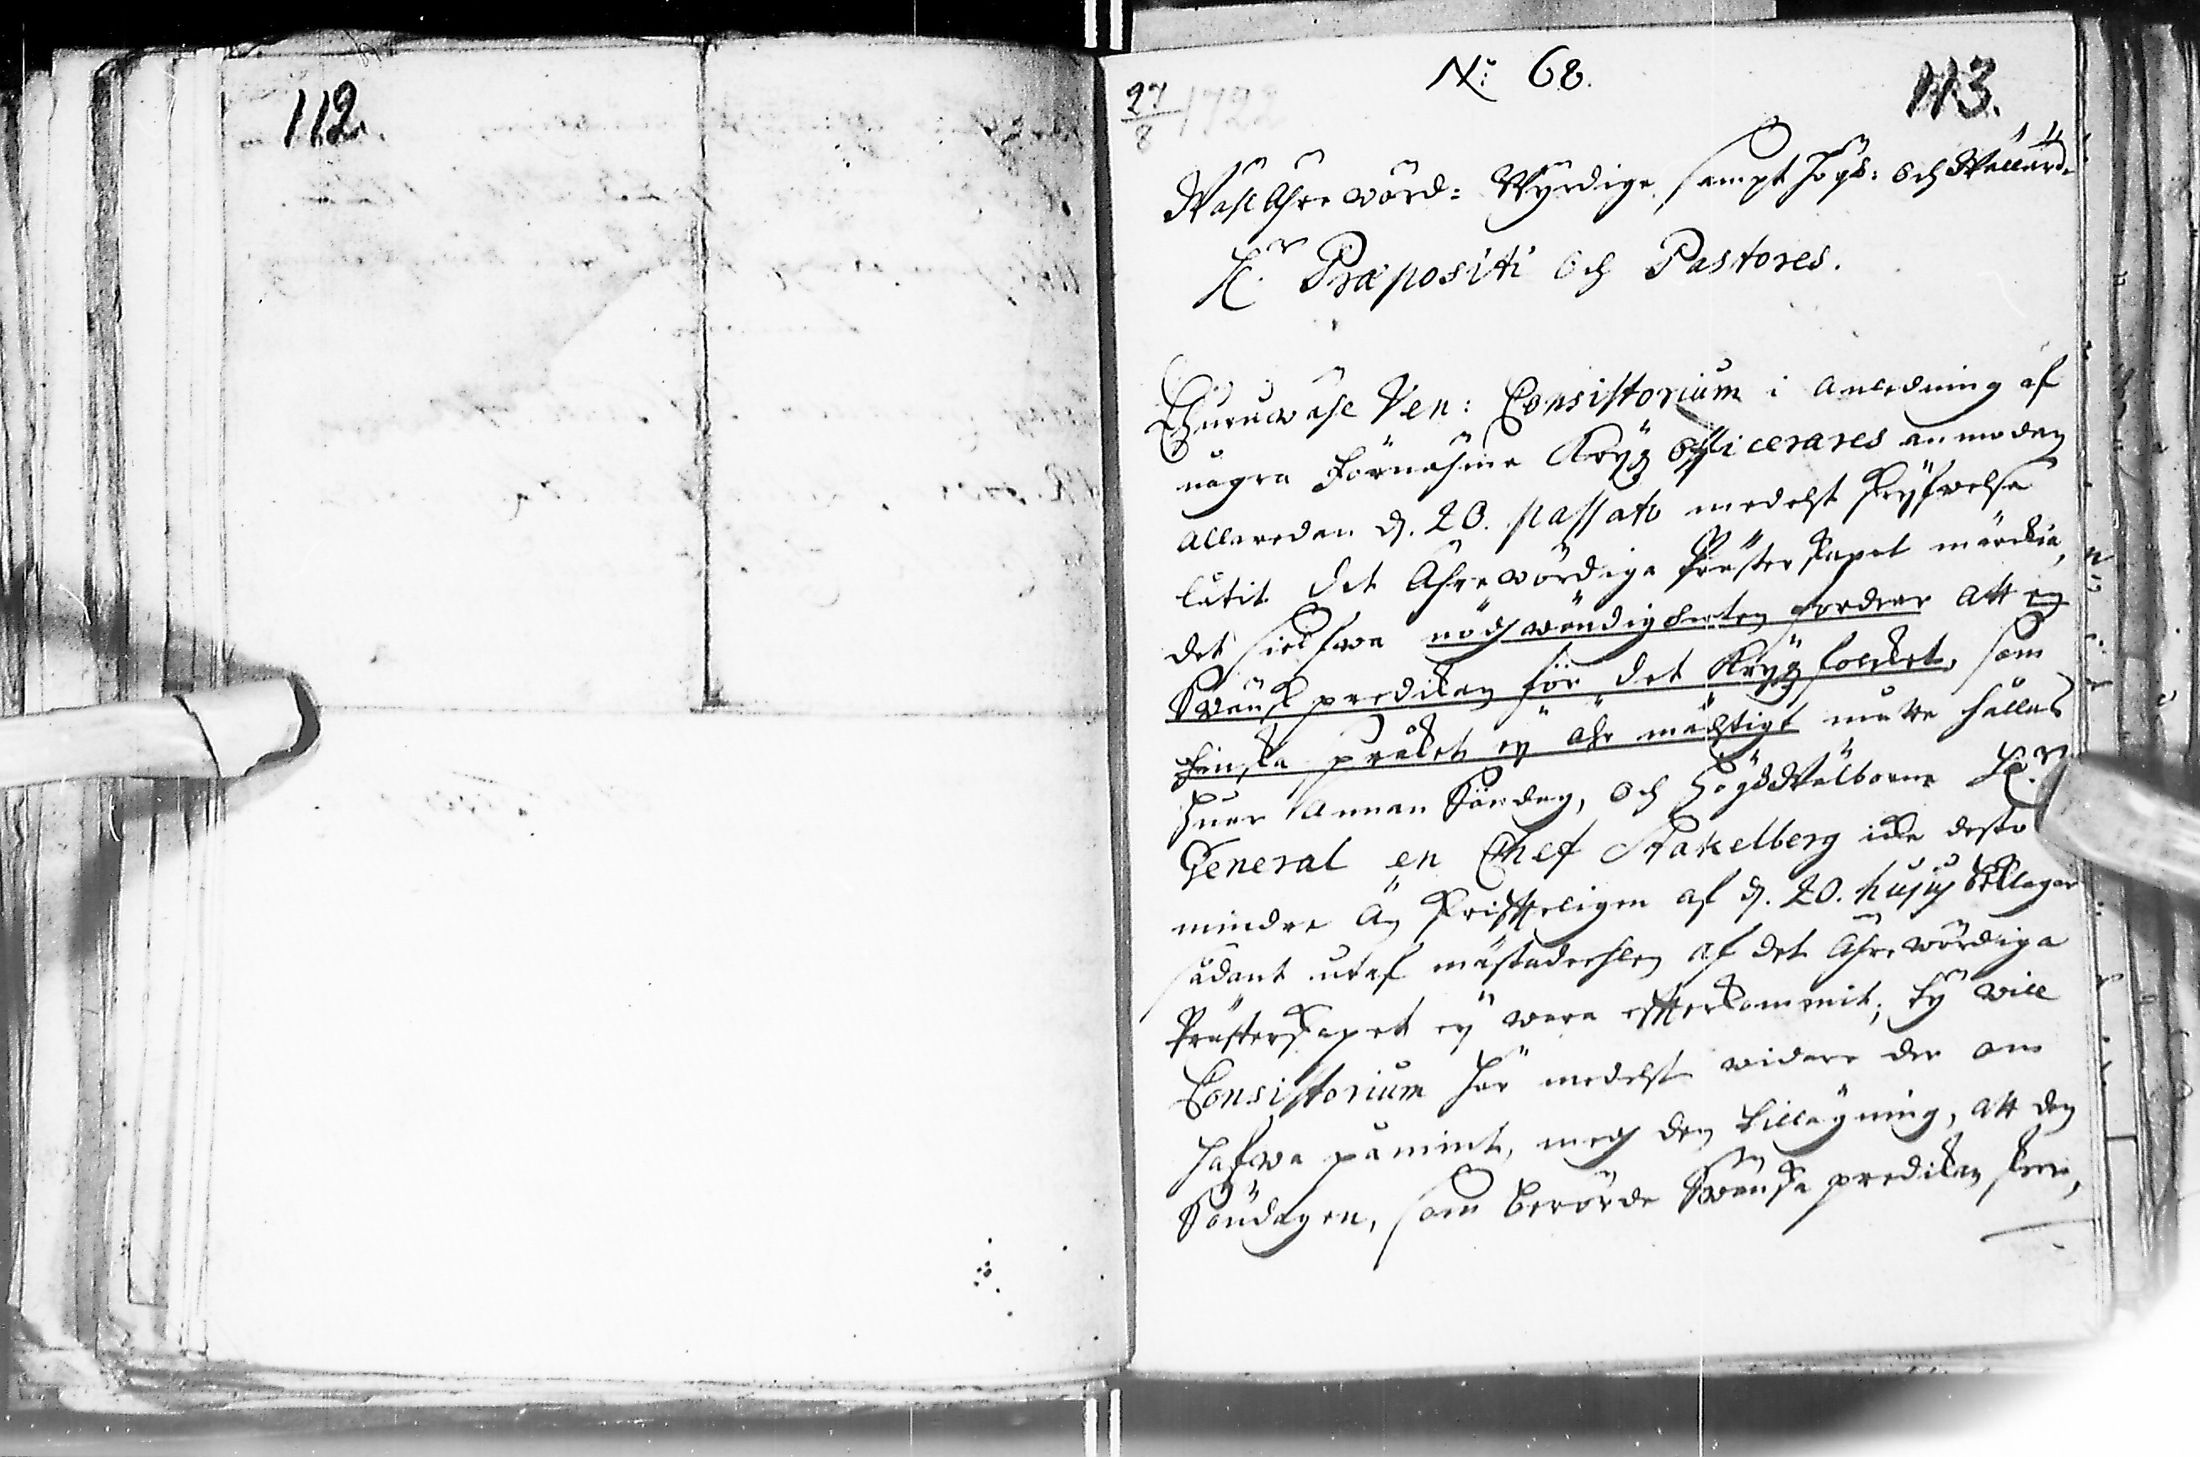 112.
27/8 1722
N: 68.
113.
Wähl Ährewörd: Wyrdige, sampt Högl: och Wällärde
H:r Præpositi och Pastores.
Ehuruwähl Ven: Consistorium i anledning af
några Förnähme Krÿgz officerares anmodan
allaredan d. 20. passato medelst skrifwelse
låtit det Ährewördiga Prästerskapet märckia,
det sielfwa nödhwändigheeten fordrar att en
Swänsk predikan för det Krÿgzfolcket, som
finska språket eÿ ähr mächtigt måtte hållas
huar annan Söndag, och Högwälborne H:r
General en Chef Stakelberg icke desto
mindre än skriffteligen af d. 20. hujus beklagar
sådant utaf mästadeehlen af det Ährewördiga
Prästerskapet eÿ wara effterkommit; tÿ will
Consistorium här medelst widare der om
hafwa påmint, medh den tillägning, att den
Söndagen, som berörde Swänska predikan skeer,